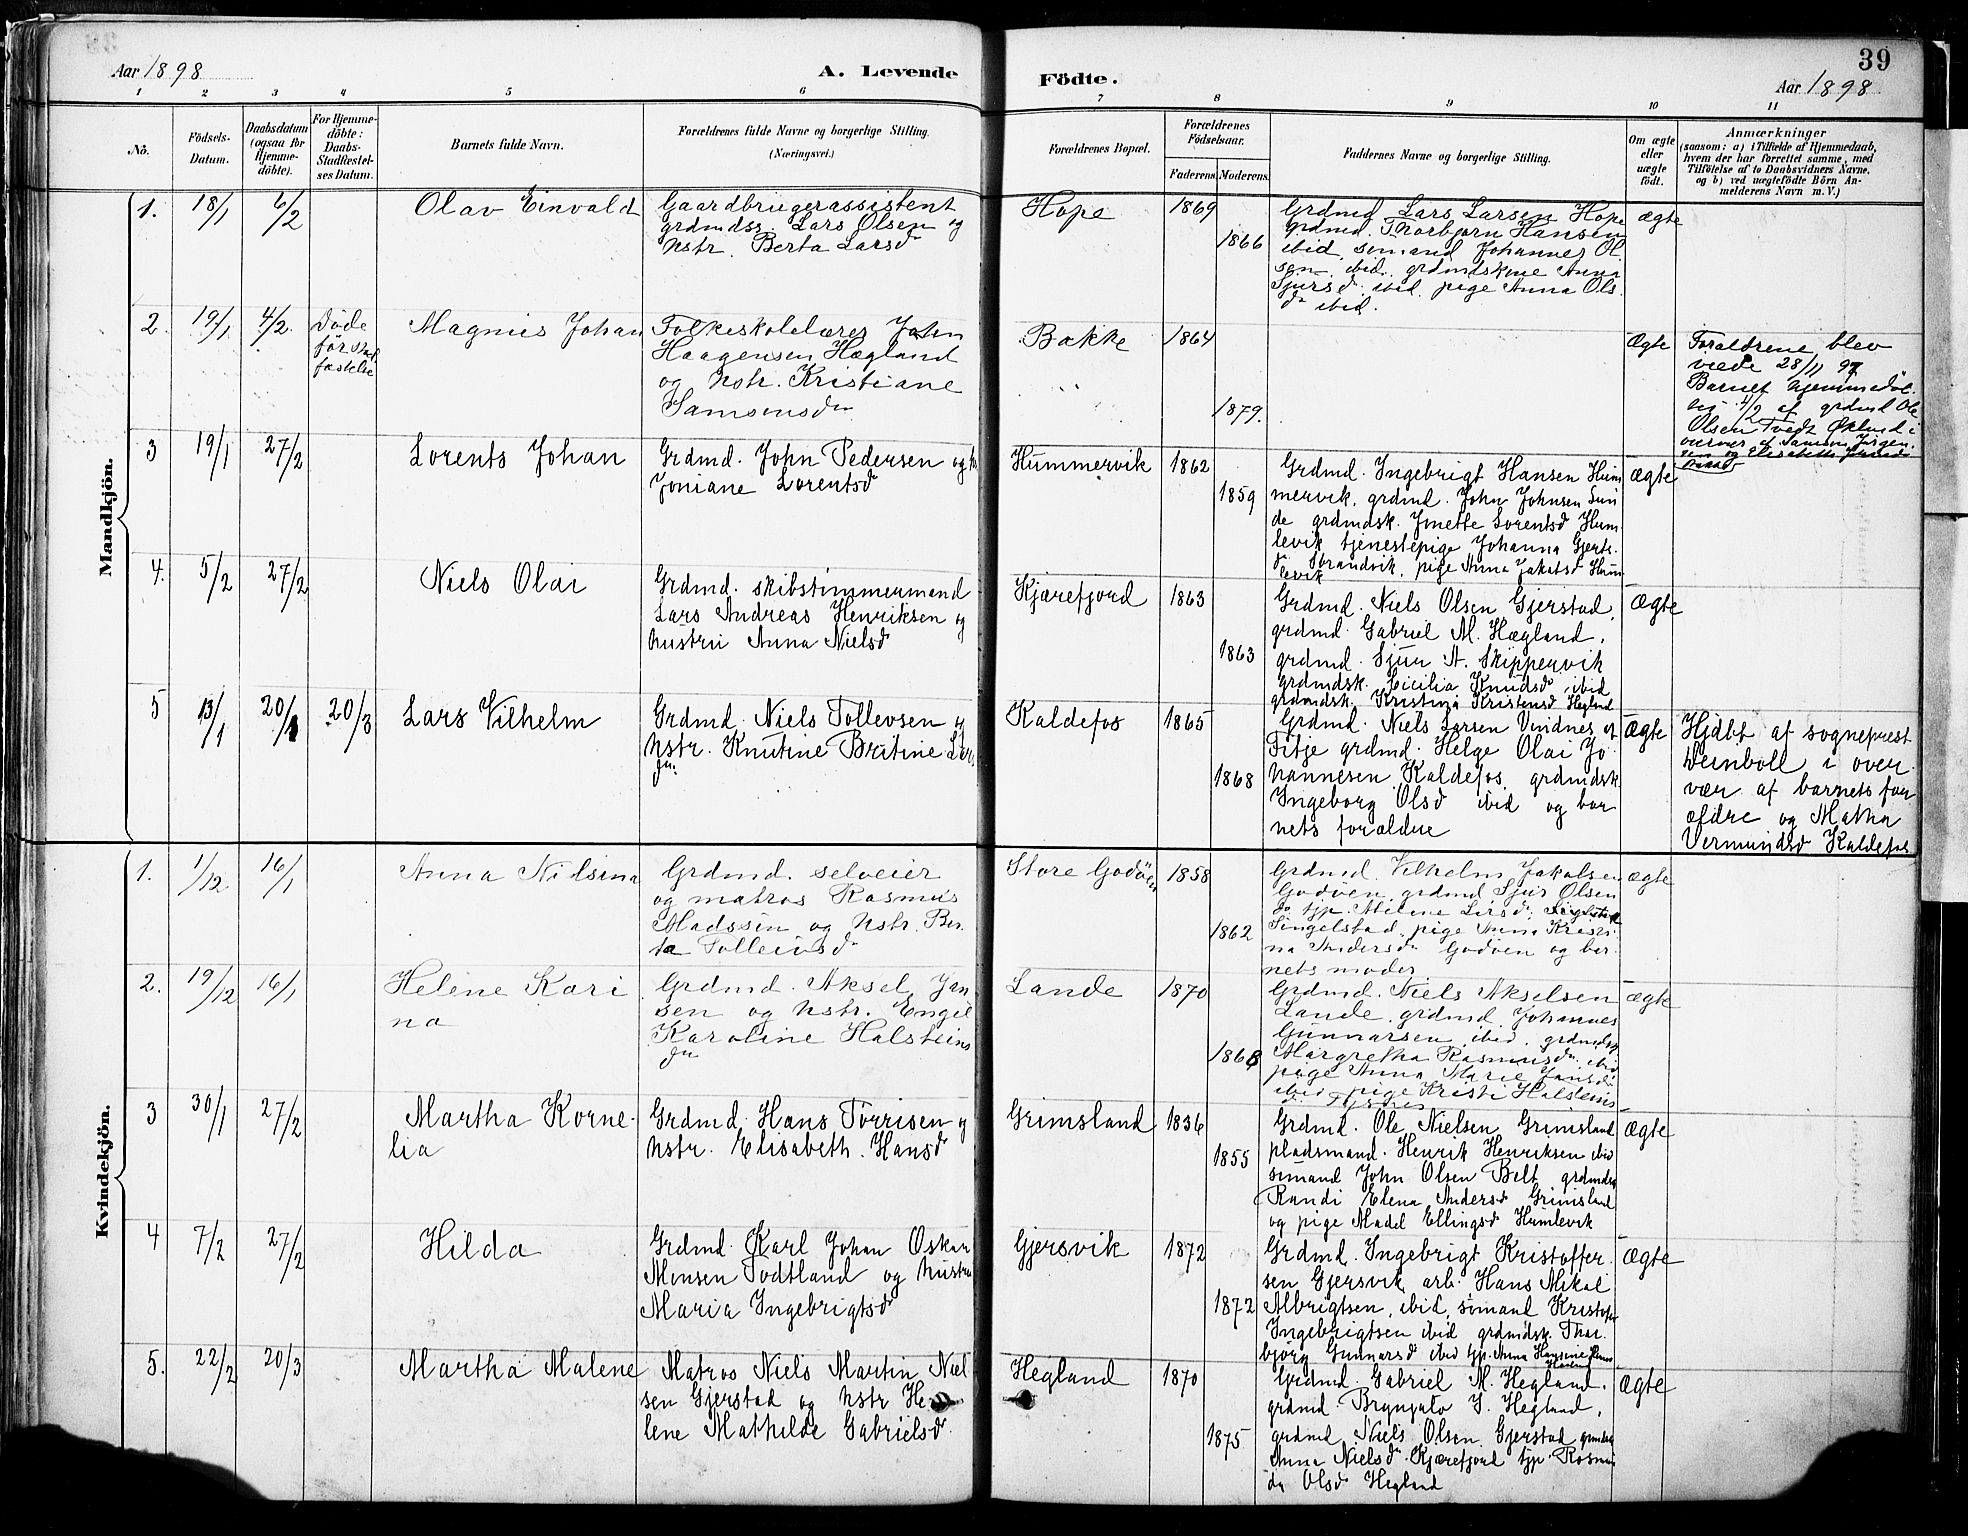 39
Aar 1898
A. Levende
Födte.
Aar 1898
1 2 3 4 5 6 7 8 9 10 11
No.
Födsels-
Datum.
Daabsdatum
(ogsaa for
Hjemme-
döbte).
For Hjemme-
döbte:
Daabs-
Stadfæstel-
ses Datum.
Barnets fulde Navn.
Forældrenes fulde Navne og borgerlige Stilling.
(Næringsvei.)
Forældrenes Bopæl.
Forældrenes
Födselsaar.
Faderens. Moderens.
Faddernes Navne og borgerlige Stilling.
Om ægte
eller
uægte
født.
Anmærkninger
(saasom: a) i Tilfælde af Hjemmedaab,
hvem der har forrettet samme, med
Tilföielse af to Daabsvidners Navne,
og b) ved uægtefödte Börn An-
melderens Navn m. V.)
Mandkjön.
1. 18/1 6/2
Olav Einvald
Gaardbrugerassistent
grdmdss. Lars Olsen og
hstr. Berta Larsd
Hope
1869
1866
Grdmd. Lars Larsen Hope
grdmd. Thorbjørn Hansen
ibid, sømand Johannes Ol
sen ibid. grdmdskone Anna
Sjursd ibid. pige Anna Ols
dr ibid.
ægte
2. 19/1 4/2
Døde
før stad
fæstelse
Magnus Johan
Folkeskolelærer John
Haagensen Hægland
og hstr. Kristiane
Samsonsdr
Bakke
1864
1879.
Ægte
Forældrene blev
viede 28/11 97
Barnet hjemmedøb
4/2 af grdmd Ole
Olsen Tvedt Øklund i
overvær af Samson Jørgen
sen og Elisabeth
3 19/1 27/2
Lorents Johan
Grdmd. John Pedersen og h
Joniane Lorentsd
Hummervik
1862
1859
Grdmd. Ingebrigt Hansen Hum
mervik, grdmd. John Johnsen Sun
de grdmdsk. Jonette Lorentsd Hum
levik tjenestepige Johanna Gjerts.
d Strandvik, pige Anna Jakobsd Hum
levik
ægte
4. 5/2 27/2
Niels Olai
Grdmd. skibstømmermand
Lars Andreas Henriksen og
hustru Anna Nielsd
Kjærefjord
1863
1863
Grdmd. Niels Olsen Gjerstad,
grdmd. Gabriel M. Hægland,
grdmd. Sjur A. Skippervik
grdmdsk. Cicilia Knudsd. ibid
grdmdsk. Kristina Kristensd Hegland
ægte
5 13/1 20/1 20/3
Lars Vilhelm
Grdmd. Niels Tollevsen og
hstr. Knutine Britine Lars
dr
Kaldefos
1865
1868
Grdmd. Niels Larsen Vindnes
Fitje grdmd. Helge Olai Jo
hannesen Kaldefos, grdmdsk
Ingeborg Olsd ibid og bar
nets forældre
ægte
Hjdbt af sogneprest
Deinboll i over
vær af barnets for
ældre og Matha
Vermundsd Kaldefos
Kvindekjön.
1. 1/12 16/1
Anna Nilsina
Grdmd. selveier
og matros Rasmus
Madssen og hstr. Ber
ta Tolleivsd
Store Godöen
1858
1862
Grdmd. Vilhelm Jakobsen
Godöen, grdmd Sjur Olsen
do tjp. Milene Larsd.
Singelstad, pige Anna Kristi
na Andersd Godöen og bar
nets moder
ægte
2. 19/12 16/1
Helene Kari
na
Grdmd. Aksel Jan
sen og hstr. Engel
Karoline Halsteins
dr
Lande
1870
1868
Grdmd. Niels Akselsen
Lande, grdmd. Johannes
Gunnarsen ibid. grdmdsk
Margretha Rasmusd. ibid
pige Anna Marie Jansd
ibid, pige Kristi Halsteins
d Tysnes
ægte
3 30/1 27/2
Martha Korne-
lia
Grdmd. Hans Torrisen og
hstr. Elisabeth Hansd
Grimsland
1836
1855
Grdmd. Ole Nielsen Grimsland
pladsmand. Henrik Henriksen ibid
sømand John Olsen Belt grdmdsk
Randi Elena Andersd Grimsland
og pige Madel Ellingsd Humlevik
ægte
4 7/2 27/2
Hilda
Grdmd. Karl Johan Oskar
Monsen Todtland og hustru
Maria Ingebrigtsd
Gjersvik
1872
1872
Grdmd. Ingebrigt Kristoffer
sen Gjersvik, arb. Hans Mikal
Albrigtsen, ibid, sømand Kristofer
Ingebrigtsen ibid grdmdsk. Thor
bjørg Gunnarsd ibid tjp. Anna Hansine
ægte
5. 22/2 20/3
Martha Malene
Matros Niels Martin Niel
sen Gjerstad og hstr He
lene Mathilde Gabrielsd
Hegland
1870
1875
Grdmd. Gabriel M. Hegland,
grdmd Bryngulv J. Hegland,
grdmd. Niels Olsen Gjerstad
Anna Nielsd Kjærefjord tjp. Rasmi
da Olsd Hegland
ægte